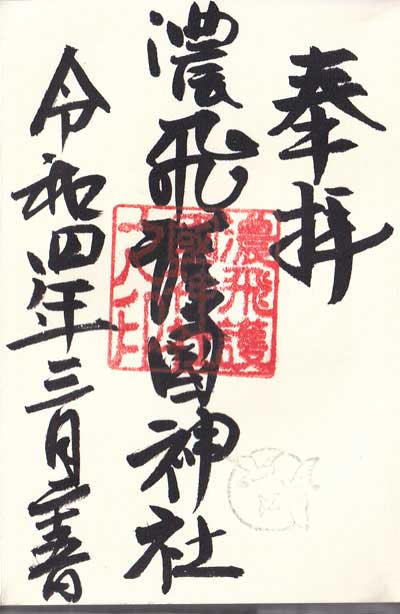 奉拝
濃飛護国神社
濃飛護
國神社
之印
令和四年三月